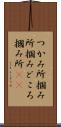 つかみ所掴み
所掴みどころ
摑み所